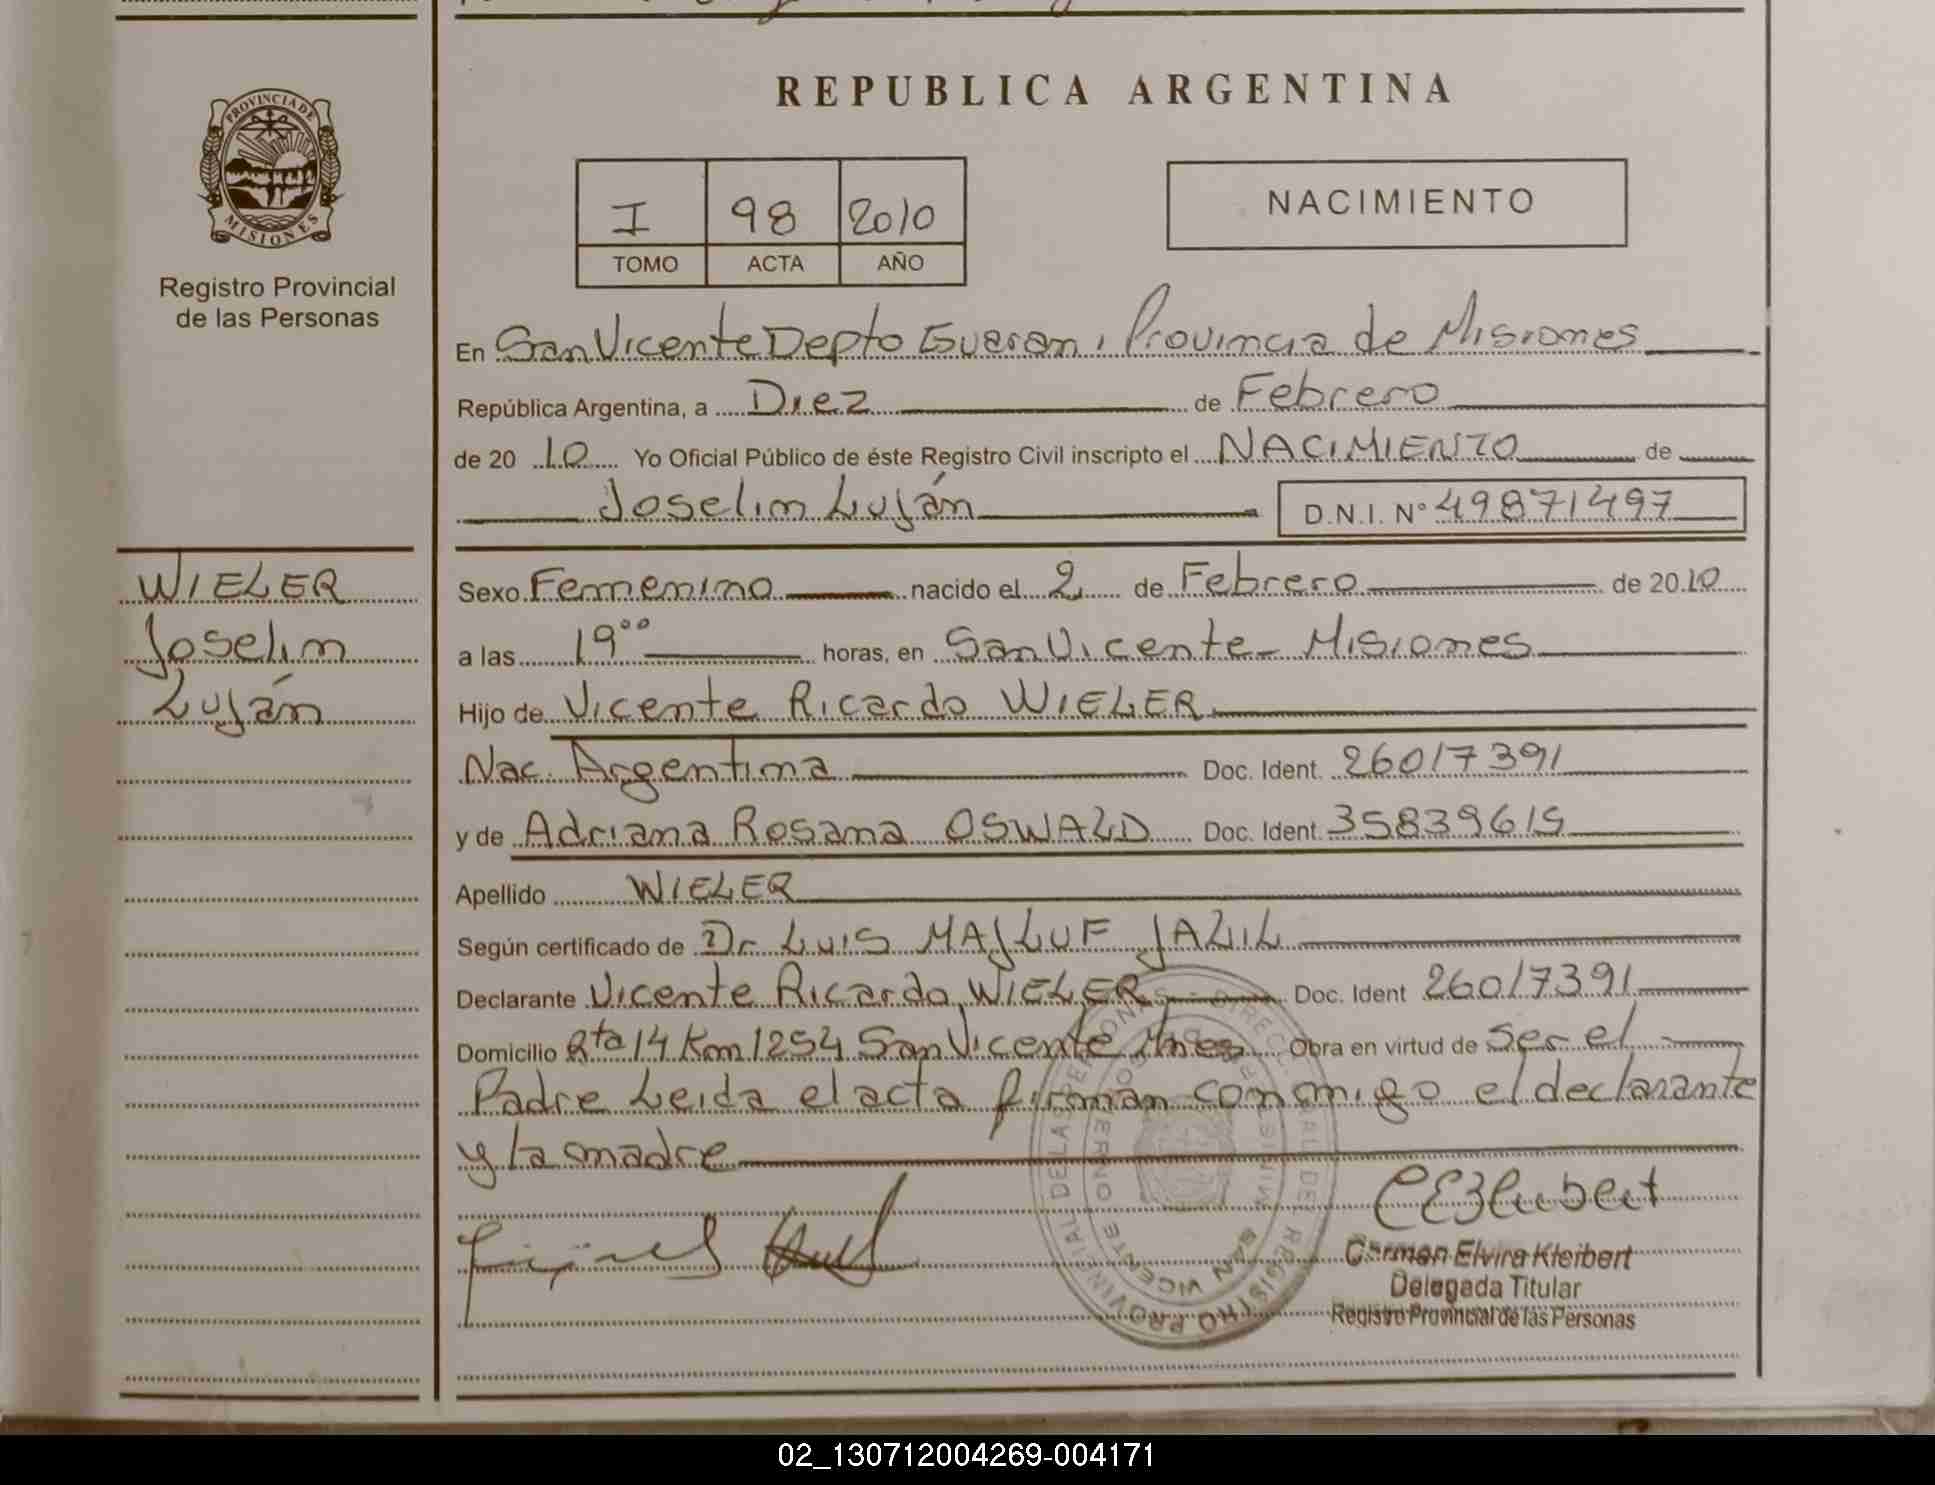 PROVINCIA DE
MISIONES
Registro Provincial
de las Personas
WIELER
Joselin
Luján
REPUBLICA ARGENTINA
I 98 2010
TOMO ACTA AÑO
NACIMIENTO
En San Vicente Depto Guarani, Provincia de Misiones
República Argentina, a Diez de Febrero
de 20 10 Yo Oficial Público de éste Registro Civil inscripto el NACIMIENTO de
Joselin Luján D.N.I. Nº 49871497
Sexo Femenino nacido el 2 de Febrero de 2010
a las 19⁰⁰ horas, en San Vicente - Misiones
Hijo de Vicente Ricardo WIELER
Nac. Argentina Doc. Ident. 26017391
y de Adriana Rosana OSWALD Doc. Ident. 35839615
Apellido WIELER
Según certificado de Dr. LUIS MAJLUF JALIL
Declarante Vicente Ricardo WIELER Doc. Ident 26017391
Domicilio Rta 14 Km 1254 San Vicente Mnes Obra en virtud de Ser el
Padre Leida el acta firman conmigo el declarante
y la madre
Carmen Elvira Kleibert
Delegada Titular
Registro Provincial de las Personas
02_130712004269-004171